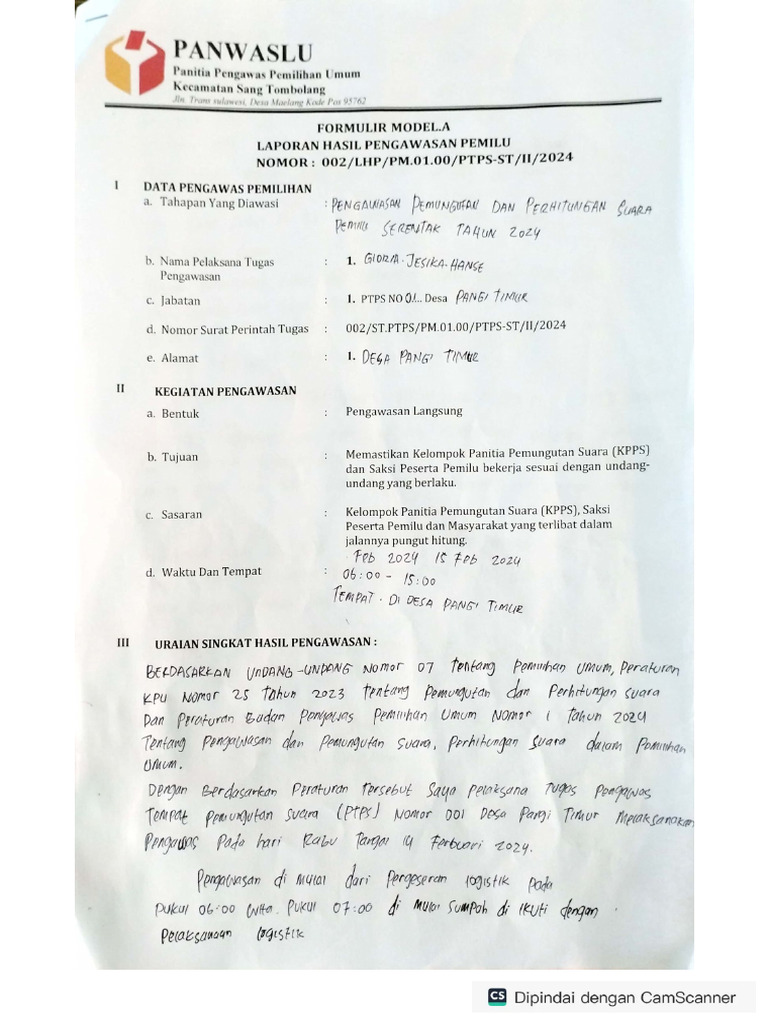 PANWASLU
Panitia Pengawas Pemilihan Umum
Kecamatan Sang Tombolang
Jln. Trans sulawesi, Desa Maelang Kode Pos 95762
FORMULIR MODEL.A
LAPORAN HASIL PENGAWASAN PEMILU
NOMOR : 002/LHP/PM.01.00/PTPS-ST/II/2024
I DATA PENGAWAS PEMILIHAN
a. Tahapan Yang Diawasi : PENGAWASAN PEMUNGUTAN DAN PERHITUNGAN SUARA
PEMILU SERENTAK TAHUN 2024
b. Nama Pelaksana Tugas : 1. GLORIA. JESIKA. HANSE
Pengawasan
c. Jabatan : 1. PTPS NO 01... Desa PANGI TIMUR
d. Nomor Surat Perintah Tugas : 002/ST.PTPS/PM.01.00/PTPS-ST/II/2024
e. Alamat : 1. DESA PANGI TIMUR
II KEGIATAN PENGAWASAN
a. Bentuk : Pengawasan Langsung
b. Tujuan : Memastikan Kelompok Panitia Pemungutan Suara (KPPS)
dan Saksi Peserta Pemilu bekerja sesuai dengan undang-
undang yang berlaku.
c. Sasaran : Kelompok Panitia Pemungutan Suara (KPPS), Saksi
Peserta Pemilu dan Masyarakat yang terlibat dalam
jalannya pungut hitung.
Feb 2024 15 Feb 2024
d. Waktu Dan Tempat : 06:00 - 15:00
TEMPAT. DI DESA PANGI TIMUR
III URAIAN SINGKAT HASIL PENGAWASAN :
BERDASARKAN UNDANG-UNDANG Nomor 07 tentang Pemilihan Umum, Peraturan
KPU Nomor 25 tahun 2023 tentang Pemungutan dan Perhitungan suara
Dan Peraturan Badan Pengawas Pemilihan Umum Nomor 1 tahun 2024
Tentang Pengawasan dan Pemungutan suara, Perhitungan suara dalam Pemilihan
Umum.
Dengan Berdasarkan Peraturan tersebut Saya Pelaksana Tugas Pengawas
Tempat Pemungutan suara (PTPS) Nomor 001 Desa Pangi Timur Melaksanakan
Pengawas Pada hari Rabu Tanggal 14 Ferbuari 2024.
Pengawasan di mulai dari Pergeseran logistik Pada
Pukul 06:00 wita. Pukul 07:00 di mulai Sumpah di Ikuti dengan
Pelaksanaan logistik
CS Dipindai dengan CamScanner